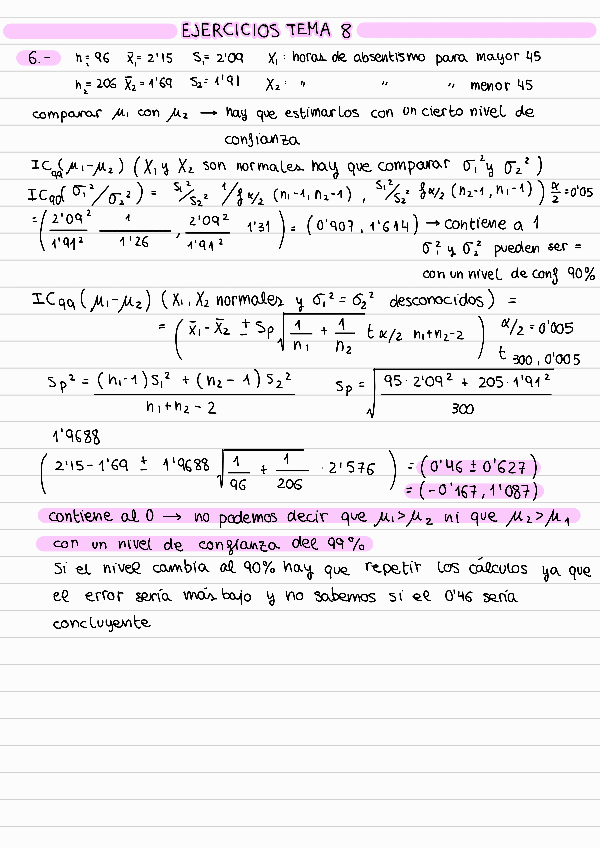 EJERCICIOS TEMA 8
6.- n₁= 96 x̄₁= 2'15 S₁= 2'09 X₁: horas de absentismo para mayor 45
n₂= 206 x̄₂= 1'69 S₂= 1'91 X₂: " " " menor 45
comparar μ₁ con μ₂ → hay que estimarlos con un cierto nivel de
confianza
IC₉₉(μ₁-μ₂) (X₁ y X₂ son normales hay que comparar σ₁² y σ₂²)
IC₉₀(σ₁²/σ₂²) = S₁²/S₂² 1/f α/2 (n₁-1, n₂-1) , S₁²/S₂² f α/2 (n₂-1, n₁-1) α/2 = 0'05
= (2'09²/1'91² 1/1'26 , 2'09²/1'91² 1'31) = (0'907, 1'614) → contiene a 1
σ₁² y σ₂² pueden ser =
con un nivel de conf 90%
IC₉₉ (μ₁-μ₂) (X₁, X₂ normales y σ₁² = σ₂² desconocidos) =
= (x̄₁-x̄₂ ± Sp √(1/n₁ + 1/n₂) t α/2 n₁+n₂-2) α/2 = 0'005
t 300, 0'005
Sp² = (n₁-1)S₁² + (n₂-1)S₂² / n₁+n₂-2 Sp = √(95·2'09² + 205·1'91² / 300)
1'9688
(2'15-1'69 ± 1'9688 √(1/96 + 1/206) · 2'576) = (0'46 ± 0'627)
= (-0'167, 1'087)
contiene al 0 → no podemos decir que μ₁>μ₂ ni que μ₂>μ₁
con un nivel de confianza del 99%
Si el nivel cambia al 90% hay que repetir los cálculos ya que
el error sería más bajo y no sabemos si el 0'46 sería
concluyente